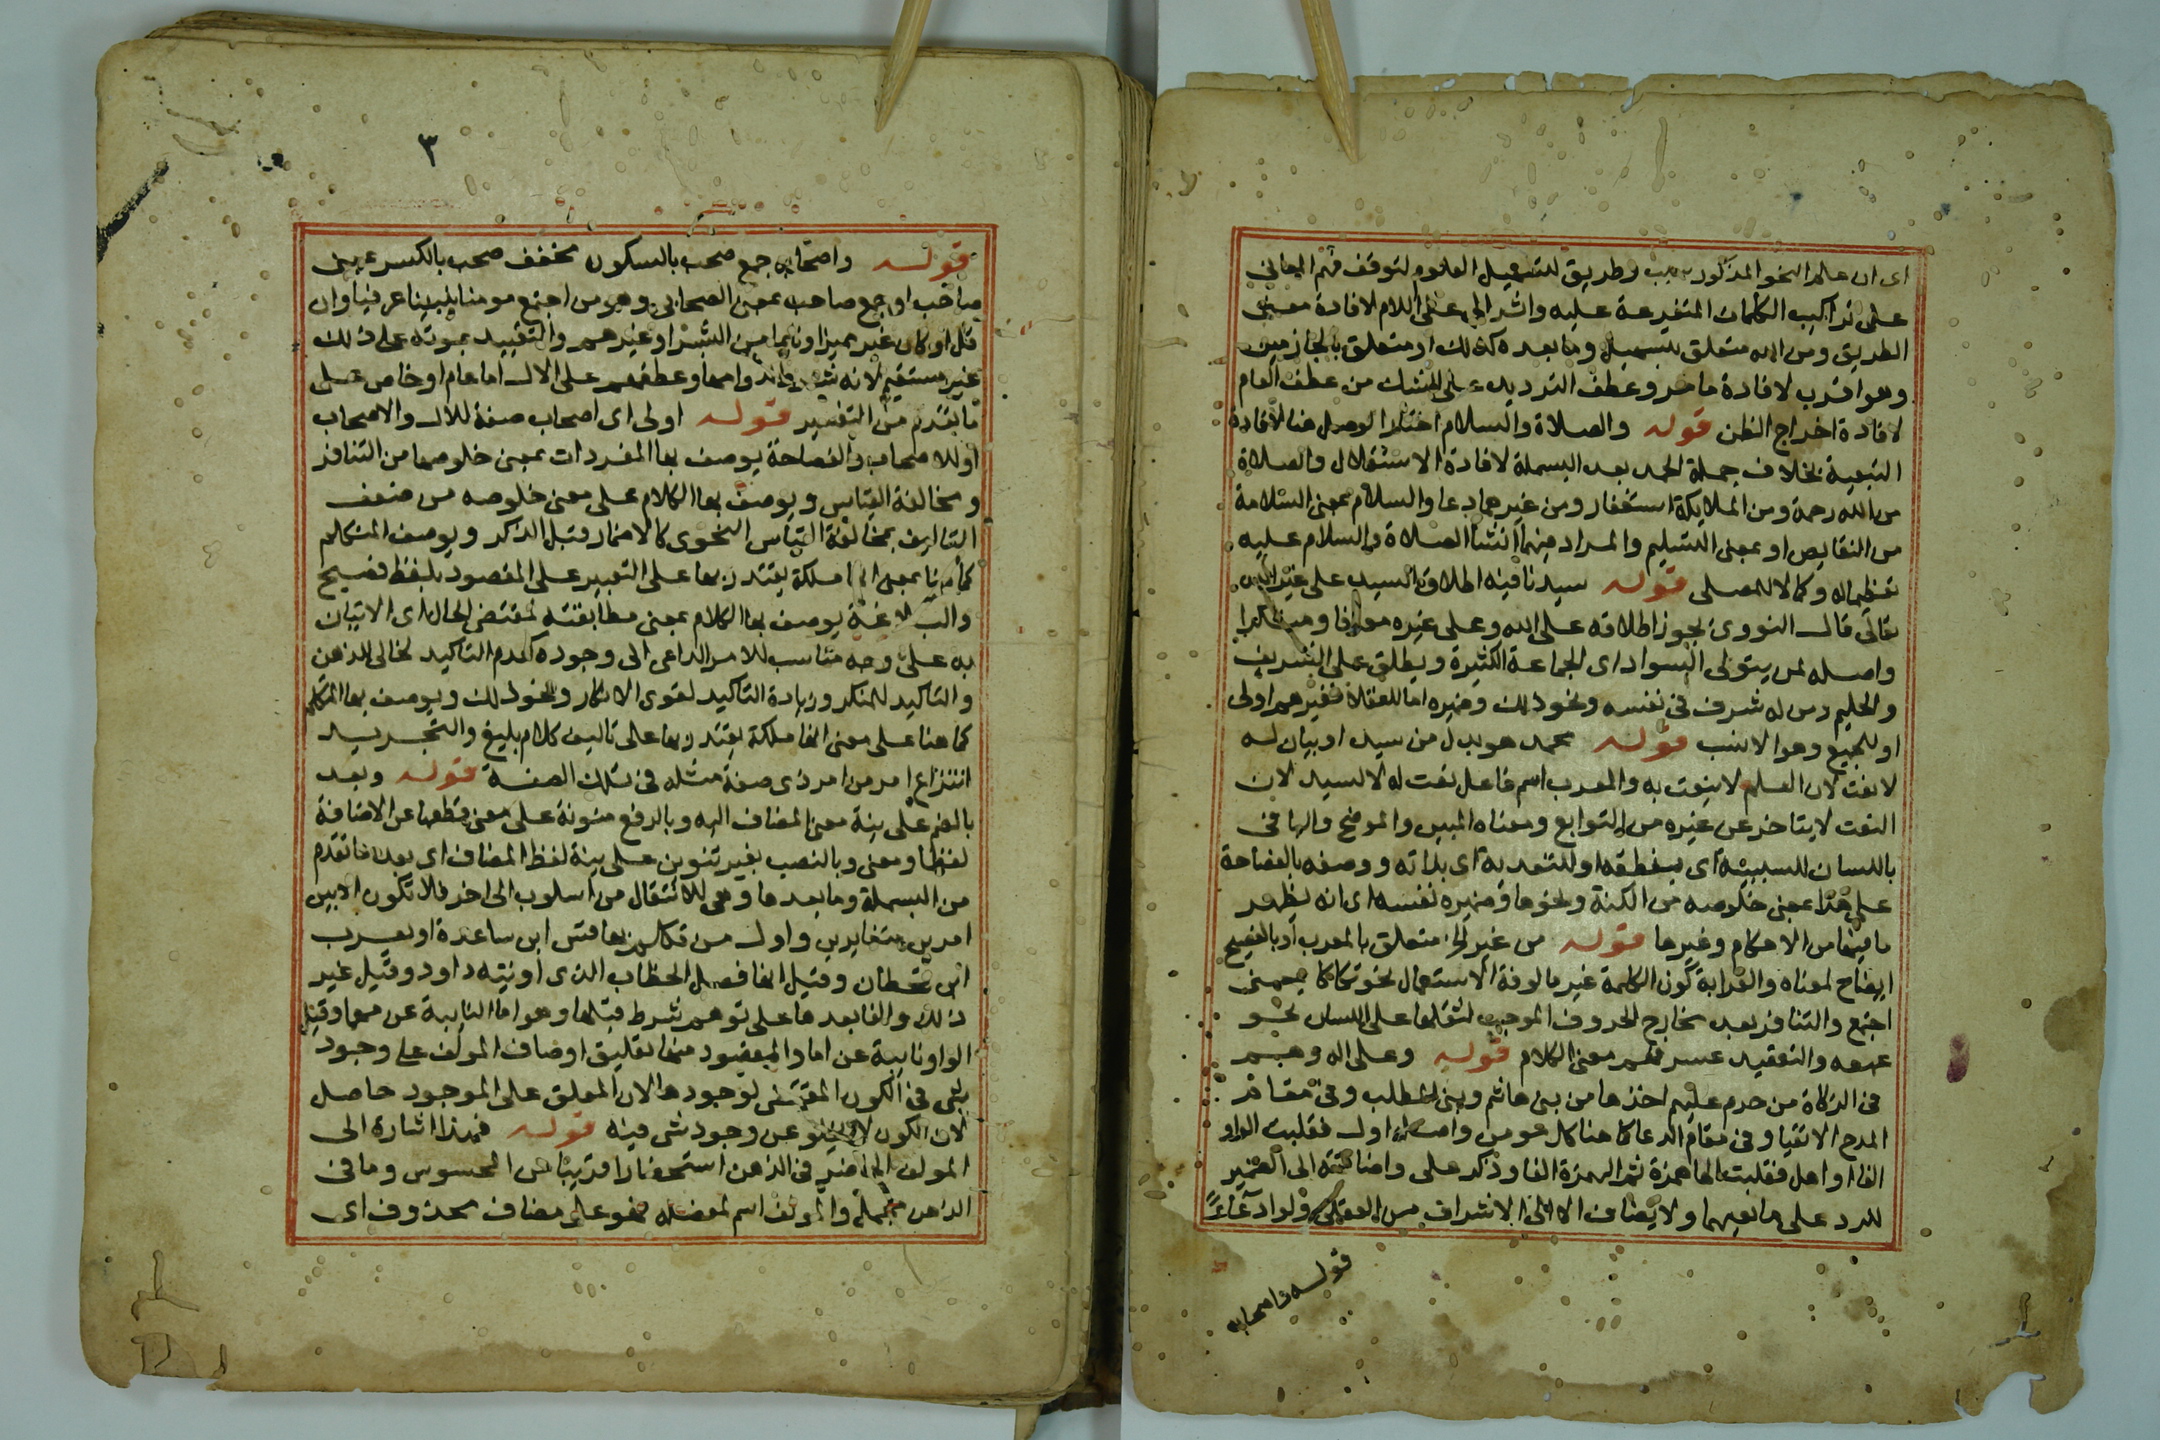 اى ان علم النحو المذكور سبب وطريق لتسهيل العلوم لتوقف فهم المعانى
على تراكيب الكلمات المتفرعة عليه واشر الى على اللام لافادة معنى
الطريق ومن الله متعلق بتسهيل وما بعده كذلك او متعلق بالجازمين
وهو اقرب لافادة ما مر وعطف الترديد على الشك من عطف العام
لافادة اخراج الظن قوله والصلاة والسلام اختار الوصل هنا لافادة
التبعية بخلاف جملة الحمد بعد البسملة لافادة الاستقلال والصلاة
من الله رحمة ومن الملايكة استغفار ومن غيرهما دعا والسلام بمعنى السلامة
من النقايص او بمعنى التسليم والمراد منهما انشا الصلاة والسلام عليه
تعظيما له وكمالا للمصلى قوله سيدنا فيه اطلاق السيد على غير الله
تعالى قال النووى يجوز اطلاقه على الله وعلى غيره معرفا ومنكرا
واصله لمن يتولى السواد اى الجماعة الكثيرة ويطلق على الشريف
والحليم ومن له شرف فى نفسه ونحو ذلك وضميره اما للعقلاء فغيرهم اولى
او للجميع وهو الانسب قوله محمد هو بدل من سيد او بيان له
لا نعت لان العلم لا ينعت به والمعرب اسم فاعل نعت له لا لسيد لان
النعت لا يتاخر عن غيره من التوابع ومعناه المبين والموضح والبا فى
باللسان للسببية اى بنطقه او للتعدية اى بذاته ووصفه بالفصاحة
على هذا بمعنى خلوصه من اللكنة ونحوها وضميره نفسه اى انه يظهر
ما فيها من الاحكام وغيرها قوله من غير الخ متعلق بالمعرب او بالفصيح
ايضاح لمعناه والغرابة كون الكلمة غير مالوفة الاستعمال نحو تكاكا بمعنى
اجتمع والتنافر بعد مخارج الحروف الموجب لثقلها على اللسان نحو
عهعه والتعقيد عسر فهم معنى الكلام قوله وعلى اله وهم
فى الزكاة من حرم عليهم اخذها من بنى هاشم وبنى المطلب وفى مقام
المدح الاتقيا وفى مقام الدعا كما هنا كل مومن واصله اول فقلبت الواو
الفا او اهل فقلبت الها همزة ثم الهمزة الفا وذكر على واضافته الى الضمير
للرد على مانعيهما ولا يضاف الا الى الاشراف من العقلا ولو ادعاءً
قوله واصحابه
٣
قوله واصحابه جمع صحب بالسكون مخفف صحب بالكسر بمعنى
صاحب او جمع صاحب بمعنى الصحابى وهو من اجتمع مومنا بنبينا عرفيا وان
قل او كان غير مميز او نايما من البشر او غيرهم والتقييد بموته على ذلك
غير مستقيم لانه شرط لدوامها وعطفهم على الال اما عام او خاص على
ما تقدم من التفسير قوله اولى اى اصحاب صفة للال والاصحاب
او للاصحاب والفصاحة يوصف بها المفردات بمعنى خلوصها من التنافر
ومخالفة القياس ويوصف بها الكلام على معنى خلوصه من ضعف
التاليف بمخالفة القياس النحوى كالاضمار قبل الذكر ويوصف المتكلم
كما هنا بمعنى انها ملكة يقتدر بها على التعبير على المقصود بلفظ فصيح
والبلاغة يوصف بها الكلام بمعنى مطابقته لمقتضى الحال اى الاتيان
به على وجه مناسب للامر الداعى الى وجوده كعدم التاكيد لخالى الذهن
والتاكيد للمنكر وزيادة التاكيد لقوى الانكار ونحو ذلك ويوصف بها المتكلم
كما هنا على معنى انها ملكة يقتدر بها على تاليف كلام بليغ والتجريد
انتزاع امر من امر ذى صفة مثله فى تلك الصفة قوله وبعد
بالضم على نية معنى المضاف اليه وبالرفع منونة على معنى قطعها عن الاضافة
لفظا ومعنى وبالنصب بغير تنوين على نية لفظ المضاف اى بعد ما تقدم
من البسملة وما بعدها وهى للانتقال من اسلوب الى اخر فلا تكون الا بين
امرين متغايرين واول من تكلم بها قس ابن ساعدة او يعرب
ابن قحطان وقيل انها فصل الخطاب الذى اوتيته داود وقيل غير
ذلك والفا بعدها على توهم شرط قبلها وهو اما النايبة عن مهما وقيل
الواو نايبة عن اما والمقصود منها تعليق اوصاف المولف على وجود
شى فى الكون المقتضى لوجودها لان المعلق على الموجود حاصل
لان الكون لا يخلو عن وجود شى فيه قوله فهذا اشارة الى
المولف الحاضر فى الذهن استحضارا قريبا من المحسوس وما فى
الذهن مجملة والمولف اسم لمفصله فهو على مضاف محذوف اى